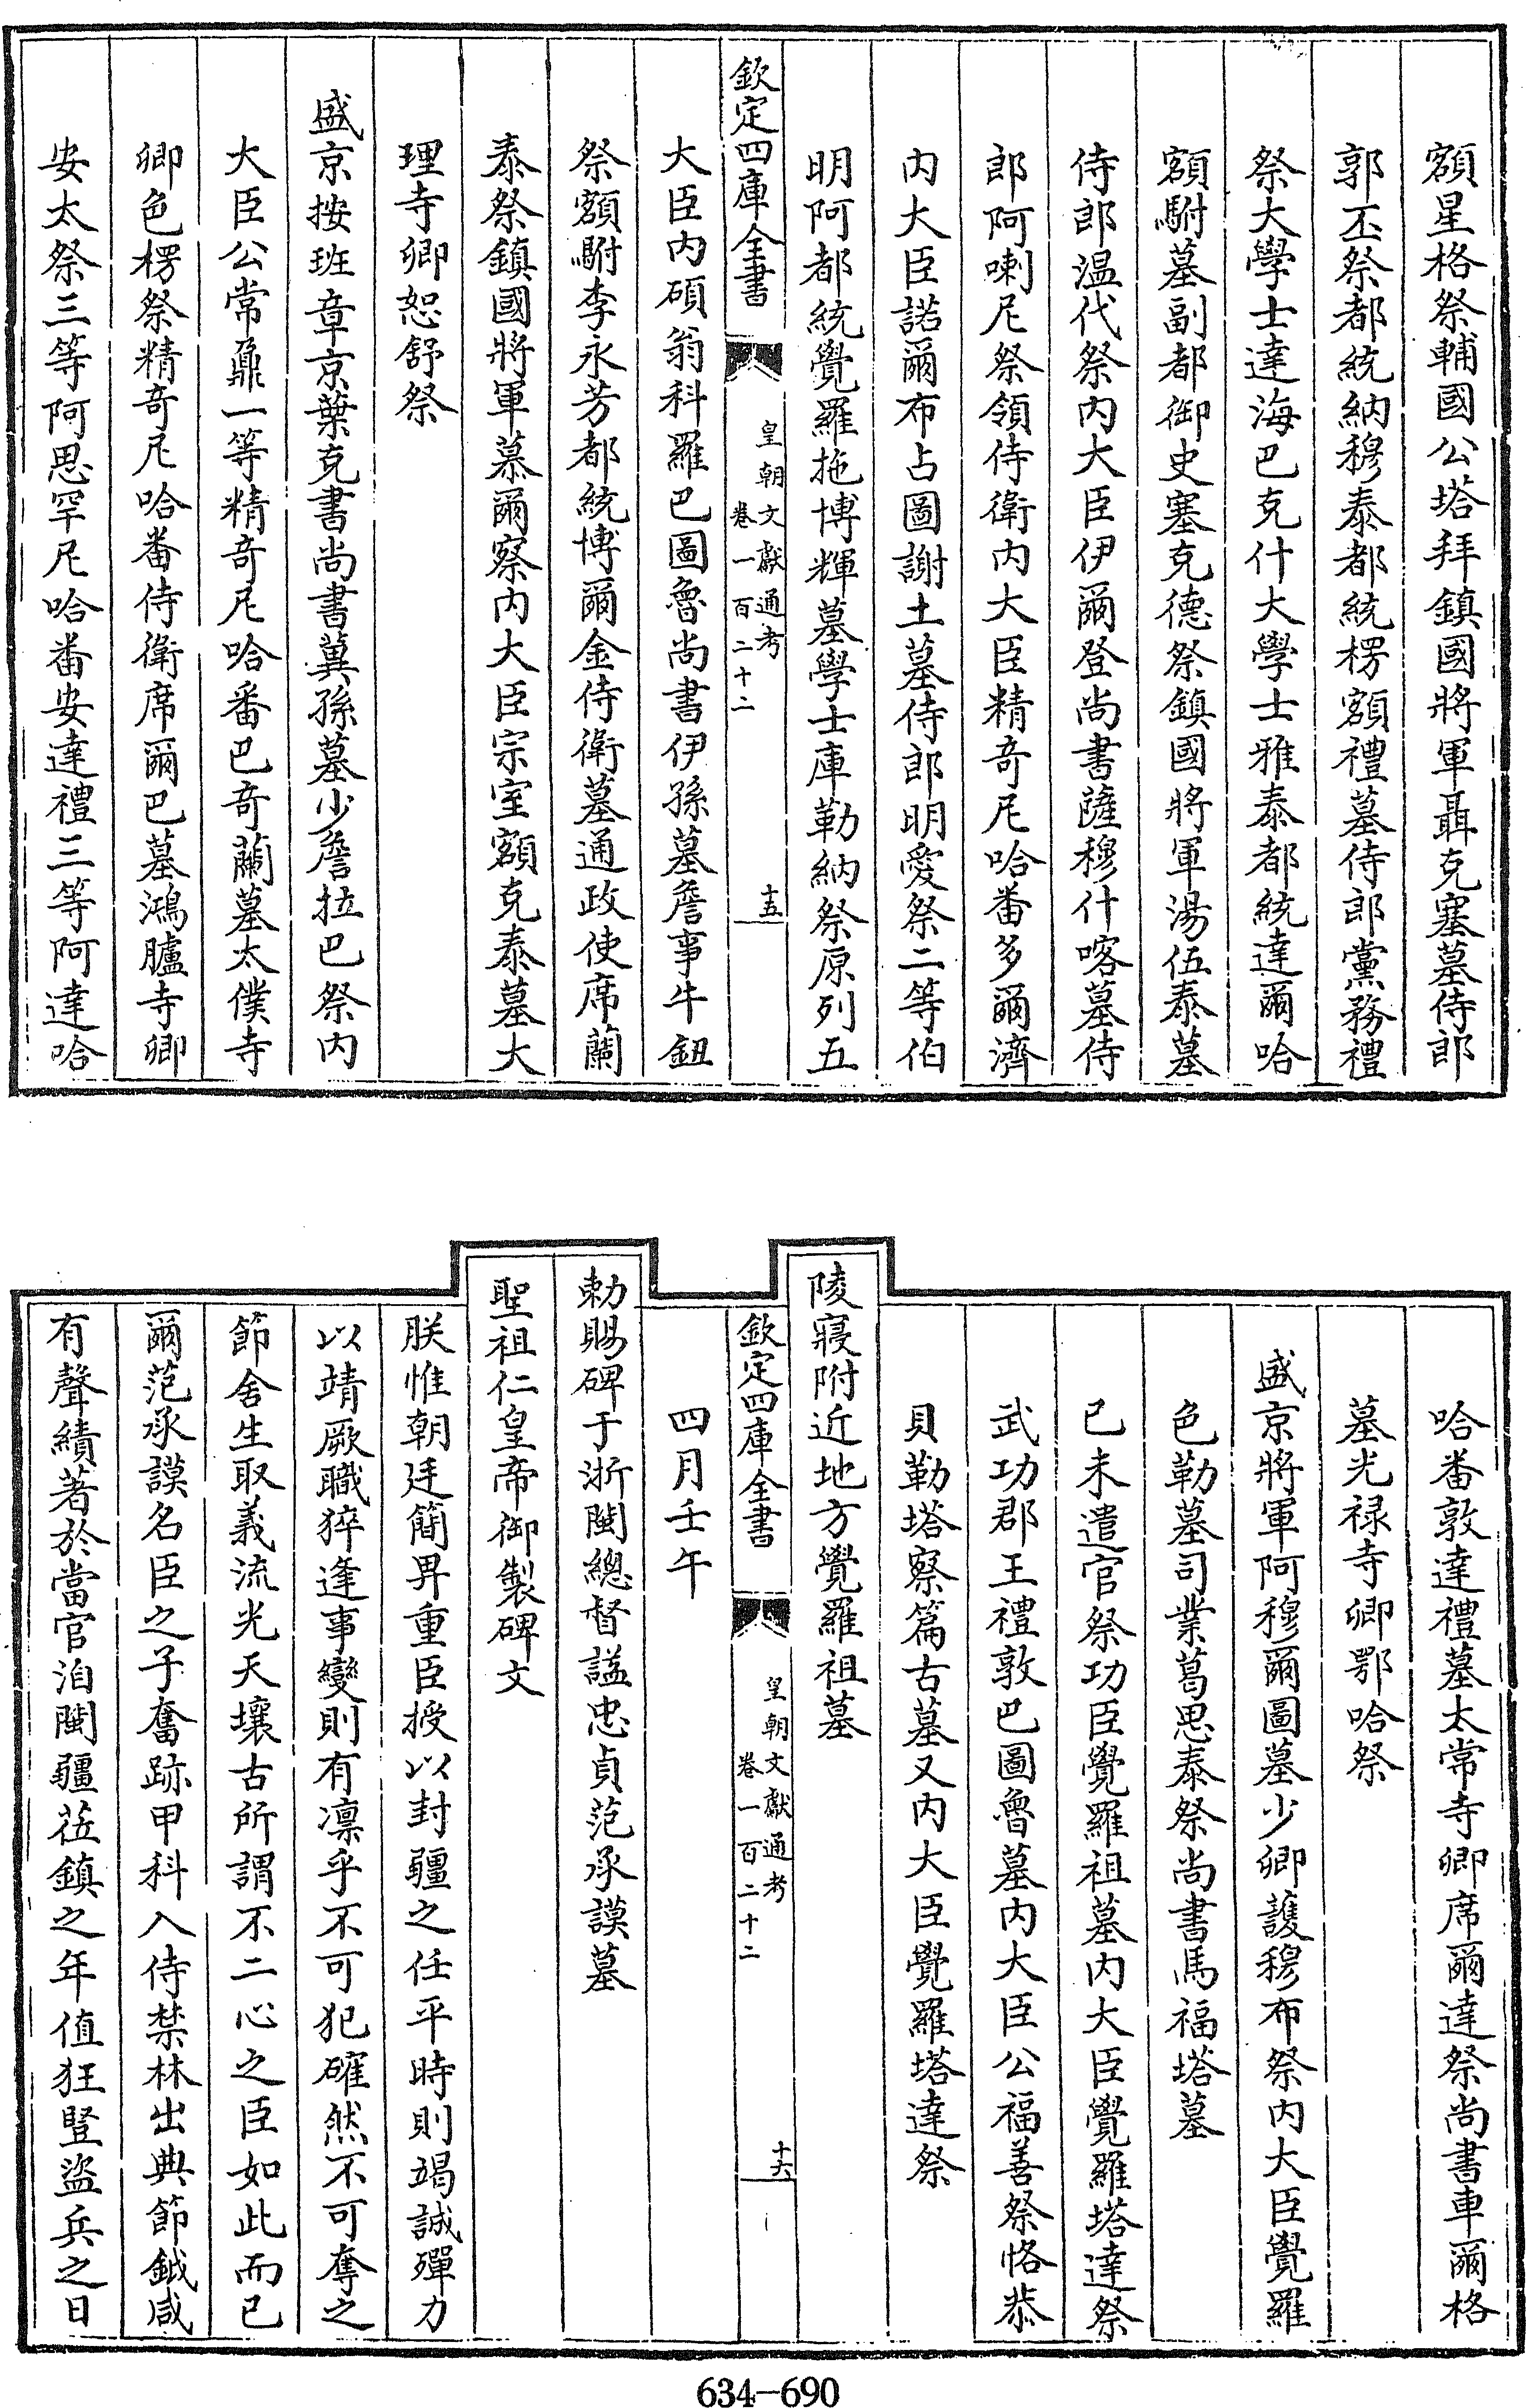 額星格祭輔國公塔拜鎮國將軍聶克塞墓侍郎
郭丕祭都統納穆泰都統楞額禮墓侍郎黨務禮
祭大學士達海巴克什大學士雅泰都統達爾哈
額駙墓副都御史塞克德祭鎮國將軍湯伍泰墓
侍郎温代祭内大臣伊爾登尚書薩穆什喀墓侍
郎阿喇尼祭領侍衛内大臣精奇尼哈番多爾濟
内大臣諾爾布占圖謝土墓侍郎明愛祭二等伯
明阿都統覺羅拖博輝墓學士庫勒納祭原列五
欽定四庫全書
皇朝文獻通考
卷一百二十二
十五
大臣内碩翁科羅巴圖魯尚書伊孫墓詹事牛鈕
祭額駙李永芳都統博爾金侍衛墓通政使席蘭
泰祭鎮國將軍慕爾察内大臣宗室額克泰墓大
理寺卿恕舒祭
盛京按班章京葉克書尚書冀孫墓少詹拉巴祭内
大臣公常鼐一等精奇尼哈番巴奇蘭墓太僕寺
卿色楞祭精奇尼哈番侍衛席爾巴墓鴻臚寺卿
安太祭三等阿思罕尼哈番安達禮三等阿達哈
哈番敦達禮墓太常寺卿席爾達祭尚書車爾格
墓光禄寺卿鄂哈祭
盛京將軍阿穆爾圖墓少卿護穆布祭内大臣覺羅
色勒墓司業葛思泰祭尚書馬福塔墓
己未遣官祭功臣覺羅祖墓内大臣覺羅塔達祭
武功郡王禮敦巴圖魯墓内大臣公福善祭恪恭
貝勒塔察篇古墓又内大臣覺羅塔達祭
陵寢附近地方覺羅祖墓
欽定四庫全書
皇朝文獻通考
卷一百二十二
十六
四月壬午
勅賜碑于浙閩總督謚忠貞范承謨墓
聖祖仁皇帝御製碑文
朕惟朝廷簡畀重臣授以封疆之任平時則竭誠殫力
以靖厥職猝逢事變則有凛乎不可犯確然不可奪之
節舍生取義流光天壤古所謂不二心之臣如此而已
爾范承謨名臣之子奮跡甲科入侍禁林出典節鉞咸
有聲績著於當官洎閩疆莅鎮之年值狂豎盜兵之日
634-690